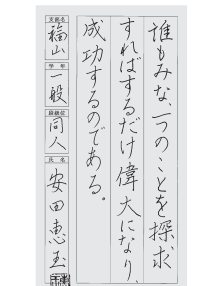 誰もみな、一つのことを探求
すればするだけ偉大になり、
成功するのである。
支部名
福山
学年
一般
段級位
同人
氏名
安田恵玉